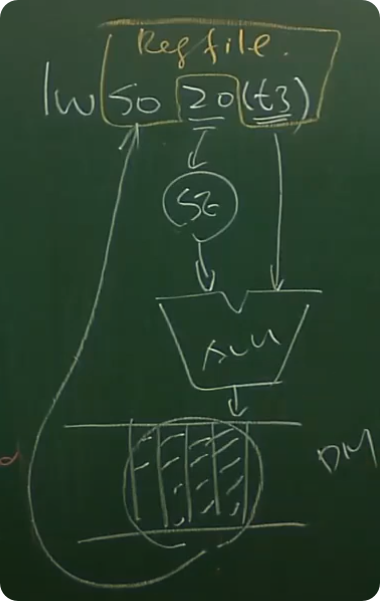 Reg file.
lw s0 20(t3)
SE
ALU
DM
d